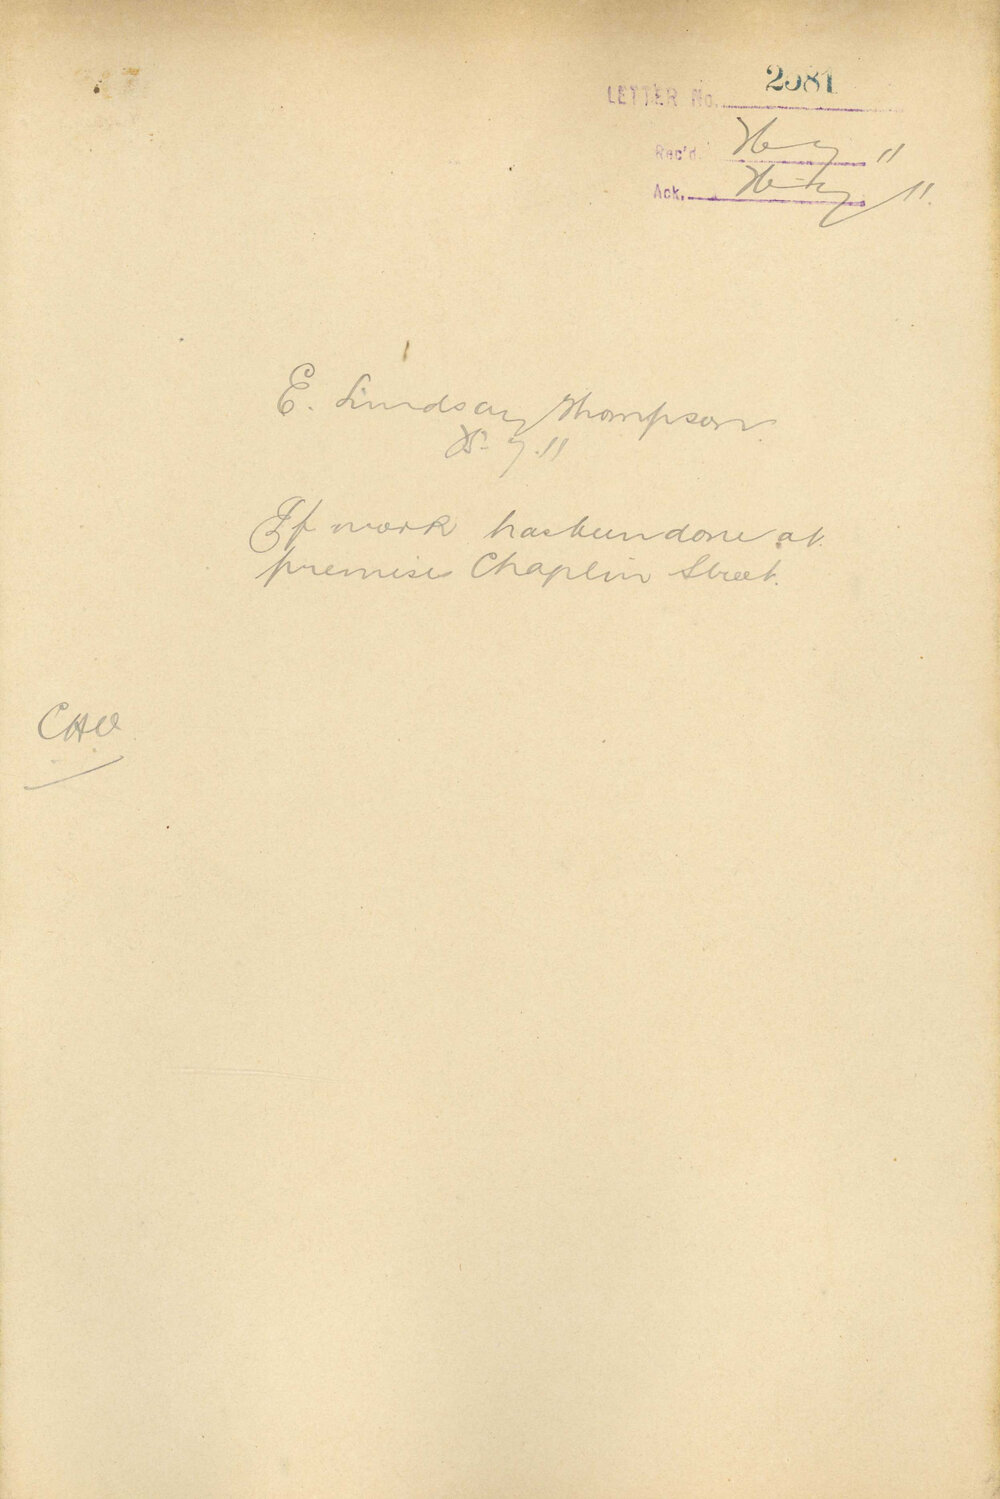 LETTER No. 2981
Rec'd. 11
Ack. 11.
E. Lindsay Thompson.
7.11
If work has been done at
premises Chaplin Street.
CHO